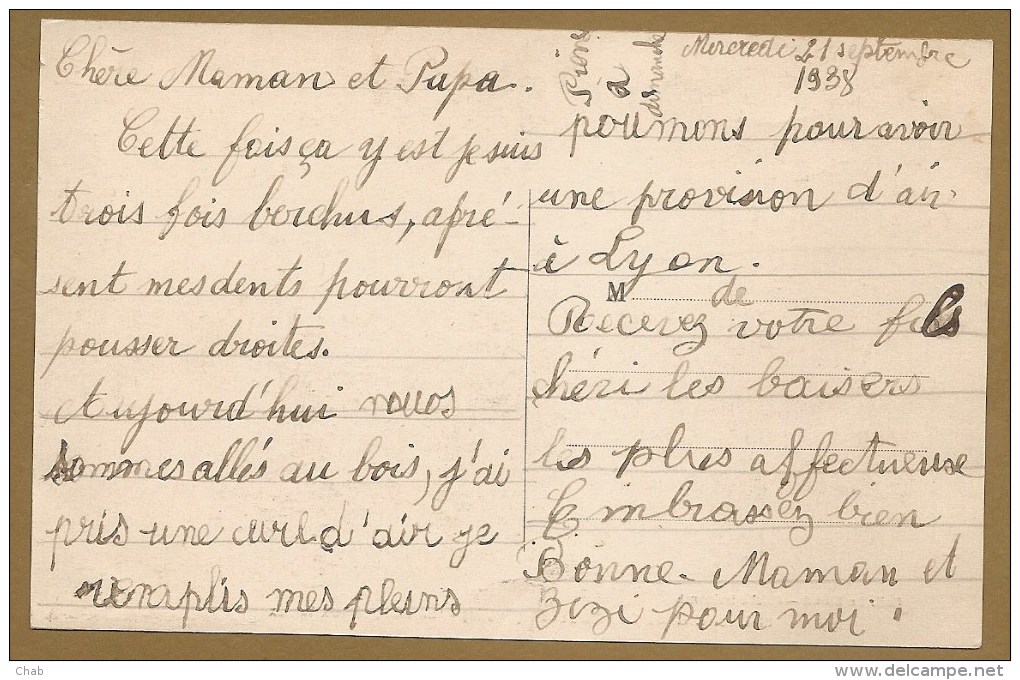 Mercredi 21 septembre
1938
Chère Maman et Pupa.
Cette fois ça y est je suis
trois fois berchus, apré-
sent mes dents pourront
pousser droites.
Aujourd'hui nous
sommes allés au bois, j'ai
pris une cure d'air je
remplis mes pleins
à
dimanche
poumons pour avoir
une provision d'air
à Lyon.
M
de
Recevez votre fils
chéri les baisers
les plus affectueuse
Embrassez bien
Bonne-Maman et
Zizi pour moi.
Chab
delcampe.net